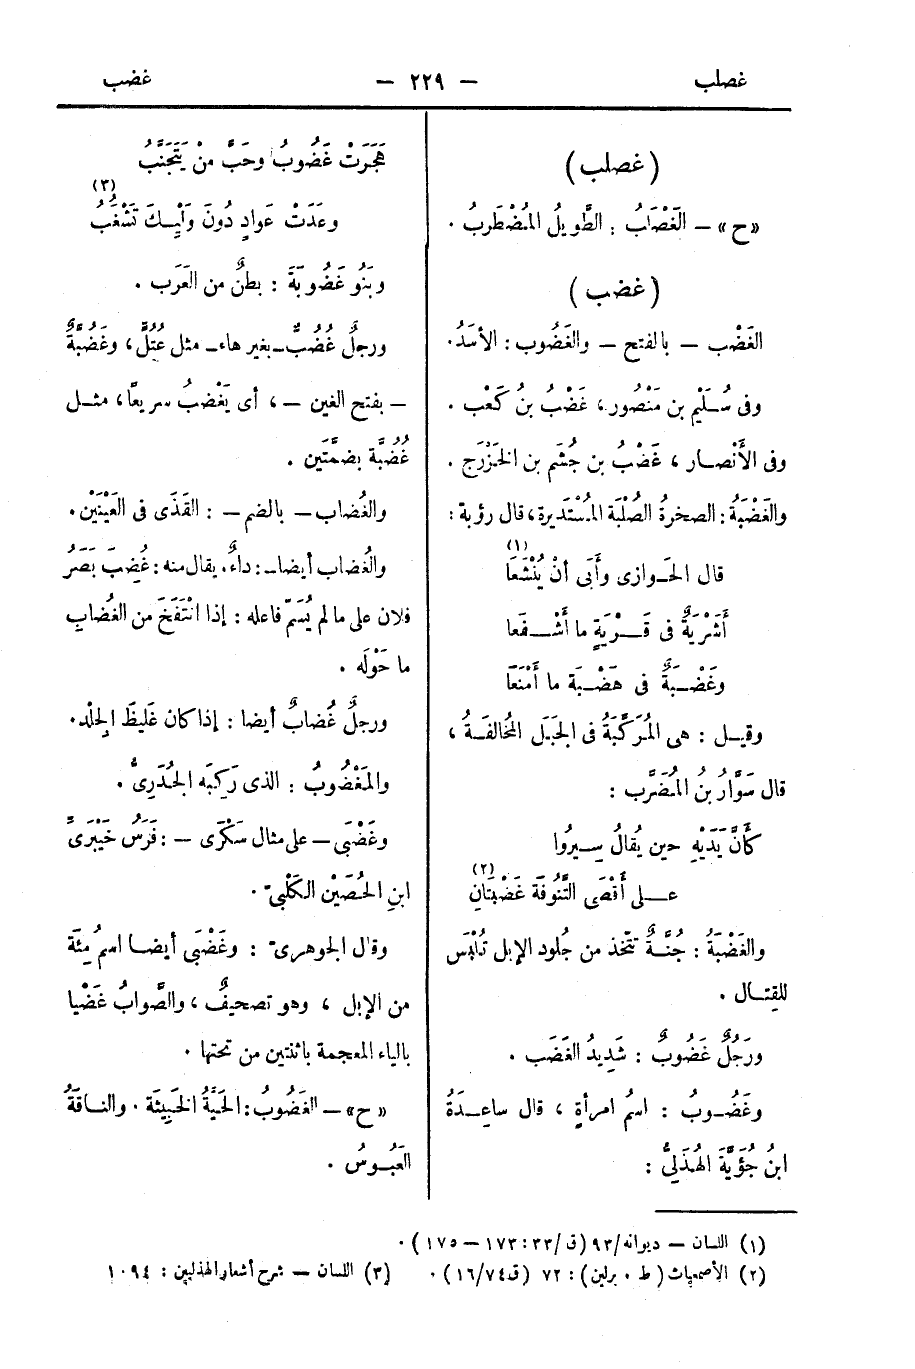 غصلب
— ٢٢٩ —
غضب
(غصلب)
«ح» — الغَصْلَبُ : الطَّوِيلُ المُضْطَرِبُ .
(غضب)
الغَضْب — بالفتح — والغَضُوب : الأَسَدُ.
وفى سُلَيْم بن مَنْصُور، غَضْبُ بنُ كَعْب .
وفى الأَنْصار ، غَضْبُ بن جُشَم بن الخَزْرَج .
والغَضْبَةُ : الصخرةُ الصُلْبَة المُسْتَدِيرة، قال رؤبة :
قال الحَوازى وأَبَى أنْ يُنْشَعَا (١)
أَشَرْيَةٌ فى قَرْيَةٍ ما أَشْفَعا
وغَضْبَةٌ فى هَضْبَة ما أَمْنَعَا
وقيل : هى المُرَكَّبَةُ فى الجَبَل المُخالفَةُ ،
قال سَوَّارُ بنُ المُضَرَّب :
كأَنَّ يَدَيْهِ حين يُقالُ سِيرُوا
على أَقْصَى التَّنُوفَة غَضْبَتَانِ (٢)
والغَضْبَةُ : جُنَّةٌ تتّخذ من جُلود الإبل تُلْبَس
للقتال .
ورَجُلٌ غَضُوبٌ : شَدِيدُ الغَضَب .
وغَضُوبُ : اسمُ امرأةٍ ، قال ساعِدَةُ
ابنُ جُؤَيَّةَ الهُذَلِىُّ :
هَجَرَتْ غَضُوبُ وحَبَّ منْ يَتَجَنَّبُ
وعَدَتْ عَوادٍ دُونَ وَلْيِكَ تَشْغَبُ (٣)
وبَنُو غَضُوبَةَ : بطنٌ من العَرَب .
ورجلٌ غُضُبٌّ — بغير هاء — مثل عُتُلٍّ ، وغَضُبَّةٌ
— بفتح الغين — ، أى يَغْضَبُ سريعًا ، مثل
غُضُبَّة بضمّتين .
والغُضاب — بالضم — : القَذَى فى العَيْنَيْن .
والغُضاب أيضا — : داءٌ. يقال منه : غُضِبَ بَصَرُ
فلان على ما لم يُسَمّ فاعله : إذا انْتَفَخَ من الغُضابِ
ما حَوْلَه .
ورجلٌ غُضابٌ أيضا : إذا كان غَلِيظَ الجِلْد.
والمَغْضُوبُ : الذى رَكِبَه الجُدَرِىُّ .
وغَضْبَى — على مثال سَكْرَى — : فَرَسُ خَيْبَرِىِّ
ابنِ الحُصَيْن الكَلْبىّ .
وقال الجوهرىّ : وغَضْبَى أيضا اسمُ مِئَة
من الإبل ، وهو تصحيفٌ ، والصَّوابُ غَضْيا
بالياء المعجمة باثنتين من تحتها .
«ح» — الغَضُوبُ : الحَيَّةُ الخَبِيثَة . والناقَةُ
العَبُوسُ .
(١) اللسان — ديوانه /٩٣ (ق /٣٣ : ١٧٣ — ١٧٥) .
(٢) الأصمعيات (ط . برلين) : ٧٢ (ق٧٤/١٦) .
(٣) اللسان — شرح أشعار الهذليين : ١٠٩٤